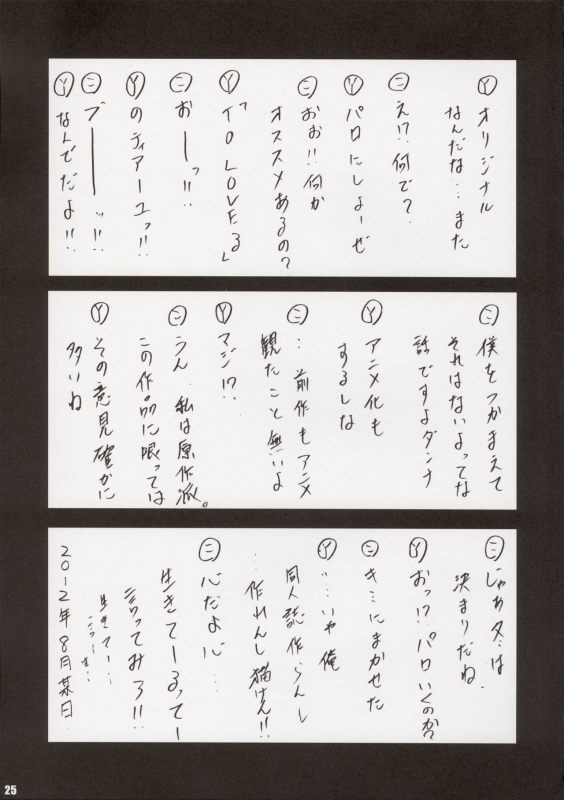 Ⓨ オリジナル
なんだな…また
㊁ え!?何で?
Ⓨ パロにしよーぜ
㊁ おお!!何か
オススメあるの?
Ⓨ 「TO LOVEる」
㊁ おーーっ!!
Ⓨ のティアーユっ!!
㊁ ブーーーッ!!
Ⓨ なんでだよ!!
㊁ 僕をつかまえて
それはないよってな
話ですよダンナ
Ⓨ アニメ化も
するしな
㊁ …前作もアニメ
観たこと無いよ
Ⓨ マジ!?
㊁ うん、私は原作派。
この作品に限っては
Ⓨ その意見確かに
多いね
㊁ じゃあ冬は
決まりだね。
Ⓨ おっ!?パロいくのか?
㊁ キミにまかせた
Ⓨ …いや俺
同人誌作らんし
…作れんし描けん!!
㊁ 心だよ心…
生きてーるってー
言ってみろ!!
生きてー…
2012年8月某日
25